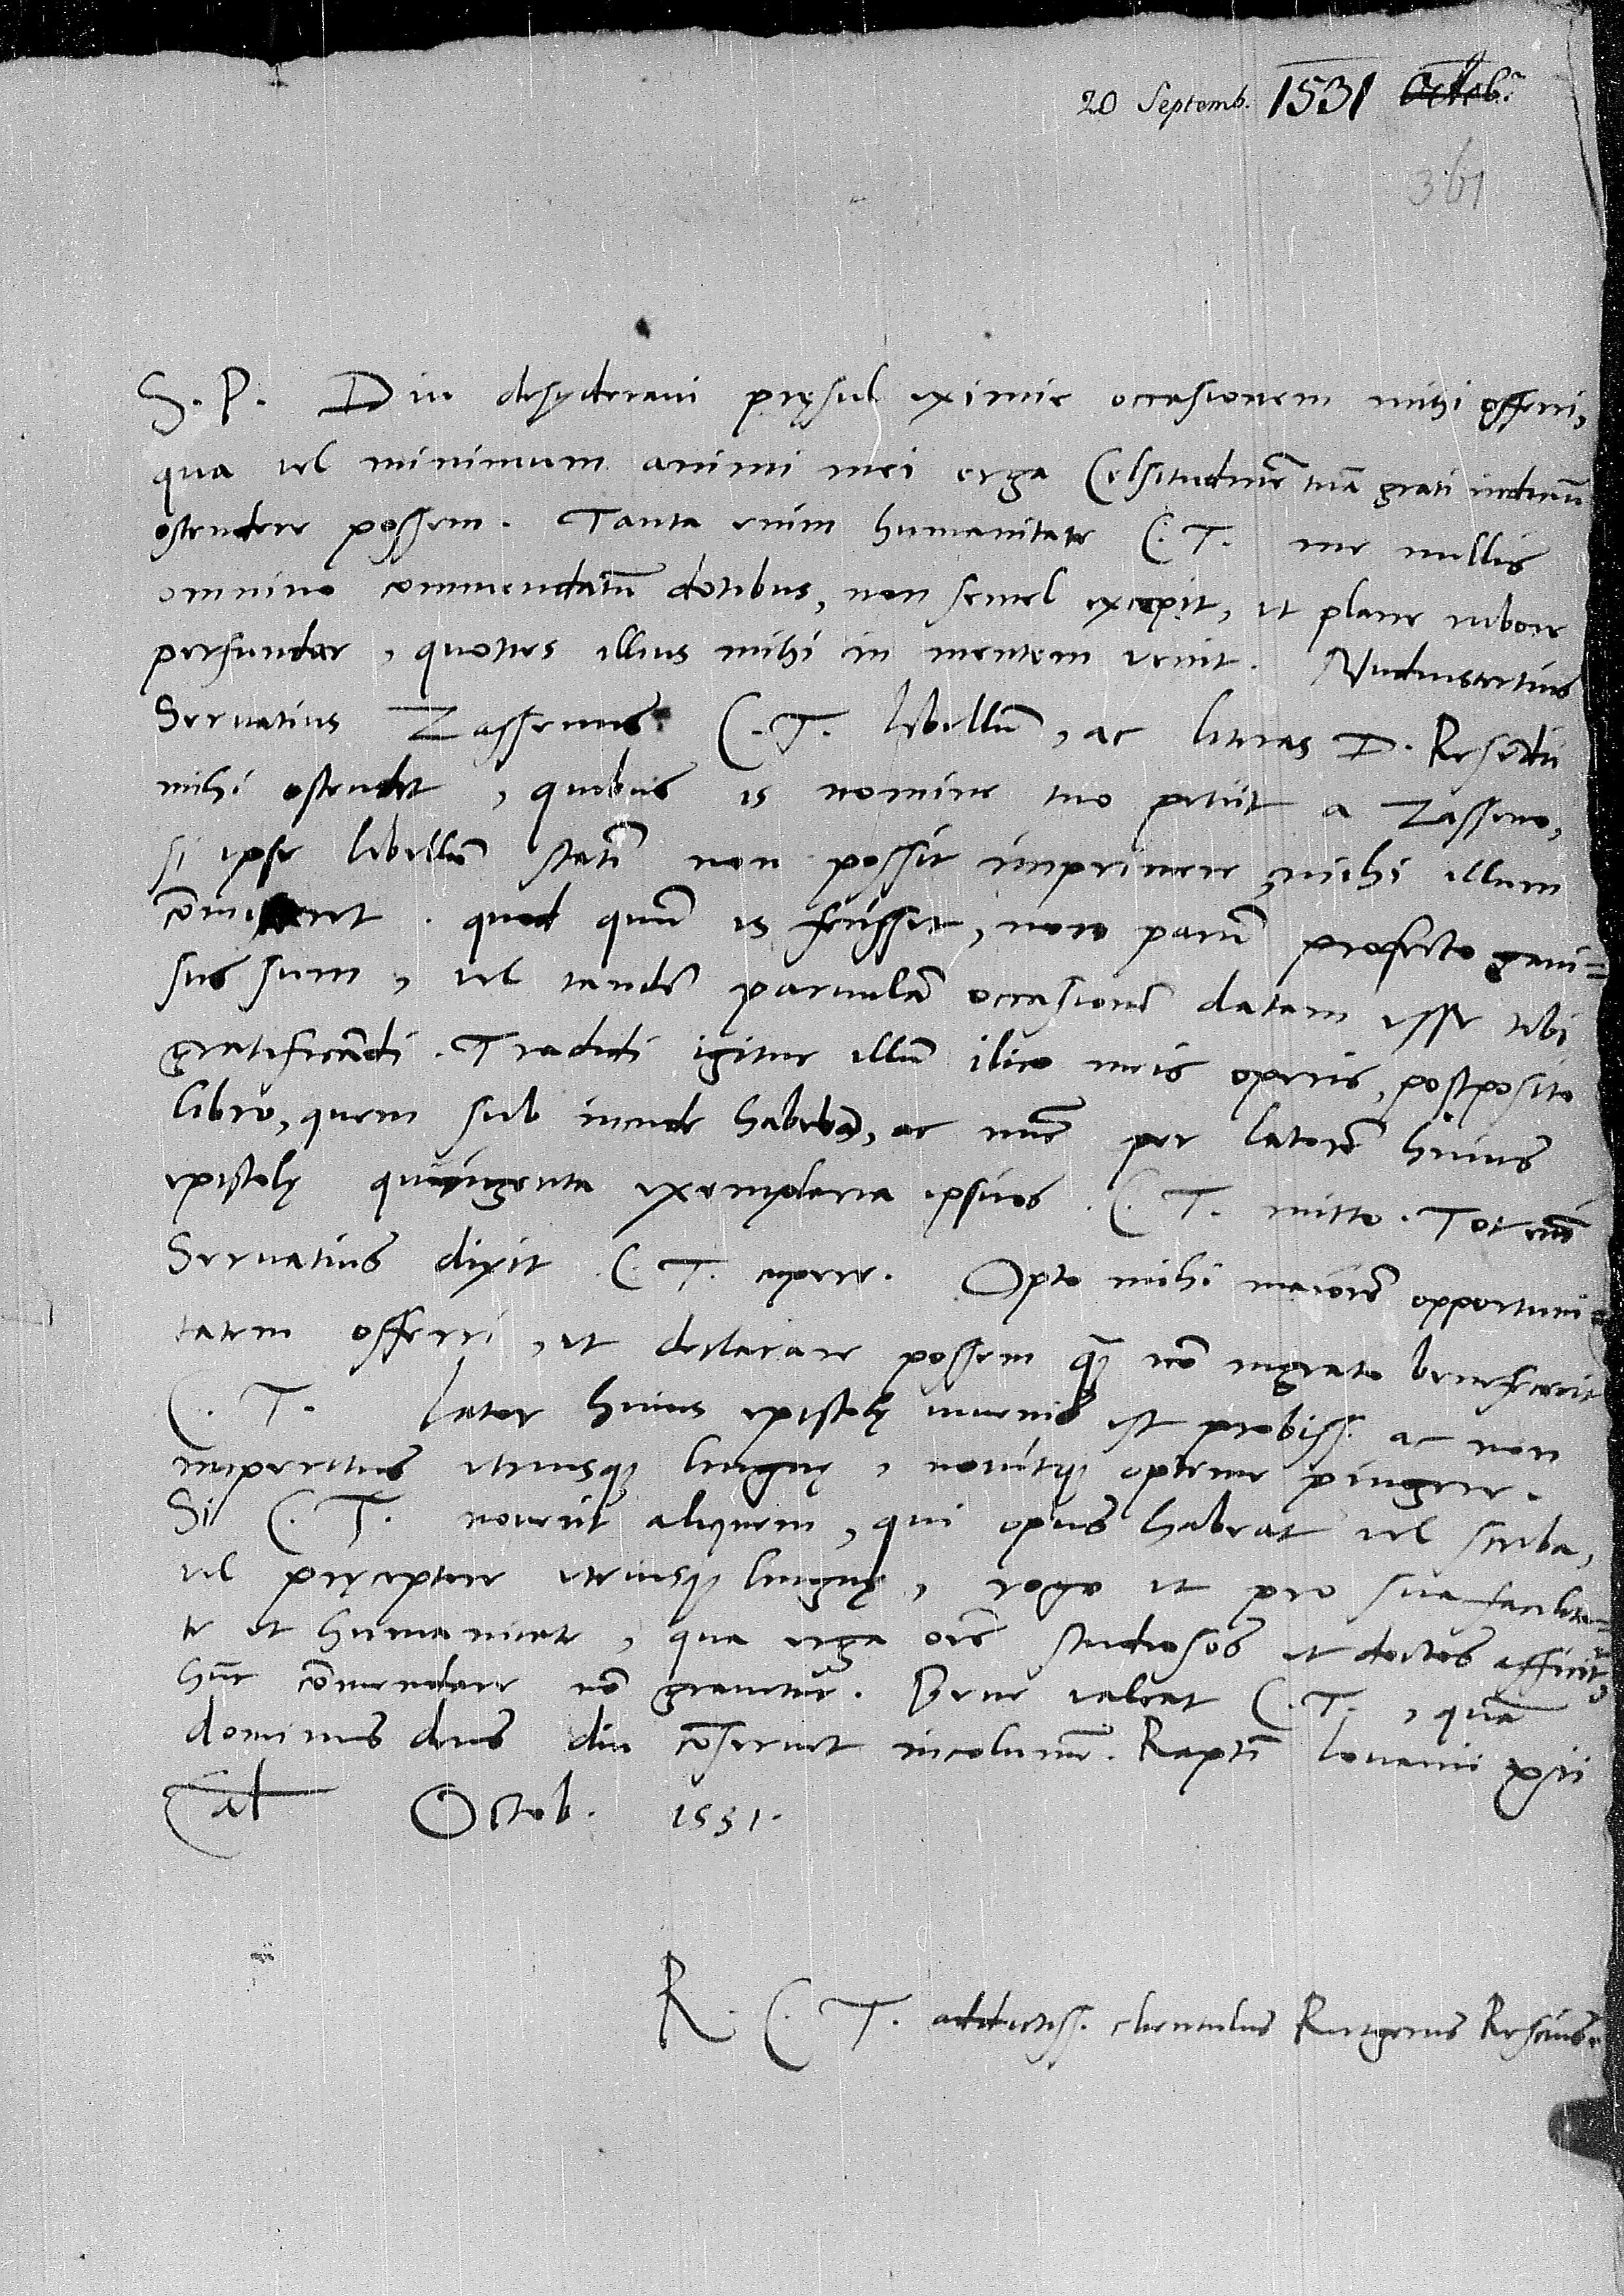 20 Septemb. 1531 Octob.
361
S. P. Diu desyderaui pręsul eximie occasionem mihi offerri,
qua uel minimum animi mei erga Celsitudinẽ tuã grati indiciũ
ostendere possem. Tanta enim humanitate C. T. me nullis
omnino commendatũ dotibus, non semel excepit, ut plane rubore
perfundar, quoties illius mihi in mentem uenit. Nudiustertius
Seruatius Zassenus C. T. libellũ, ac literas D. Resẽdii
mihi ostendit, quibus is nomine tuo petiit a Zasseno,
si ipse libellũ statĩ non possit imprimere, mihi illum
cõmitteret. quod quũ is fecisset, non parũ profecto gaui=
sus sum, uel tandẽ paruulã occasionẽ datam esse tibi
gratificãdi. Tradidi igitur illũ ilico meis operis, postposito
libro, quem sub incude habebã, ac nũc per latorẽ huius
epistolę quingenta exemplaria ipsius C. T. mitto. Tot em̃
Seruatius dixit C. T. cupere. Opto mihi maiorẽ opportuni
tatem offerri, ut declarare possem q̃ nõ ingrato benefecerit
C. T. Lator huius epistolę iuuenis est probiss. ac non
imperitus utriusq; linguę, nouitq; optime pingere.
Si C. T. nouerit aliquem, qui opus habeat uel scriba,
uel pręceptore utriusq; linguę, rogo ut pro sua facilita=
te et humanitate, qua erga oẽs studiosos et doctos afficit᷑,
hũc cõmendare nõ grauetur. Bene ualeat C. T., quã
dominus deus diu cõseruet incolumẽ. Raptĩ Louanii xii
Cal Octob. 1531.
R. C. T. addictiss. clientulus Rutgerus Rescius.